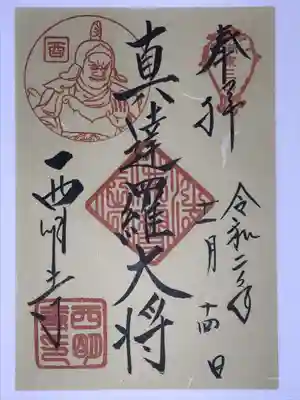 奉拝
令和二年
十一月十四日
真達羅大将
酉
西明寺